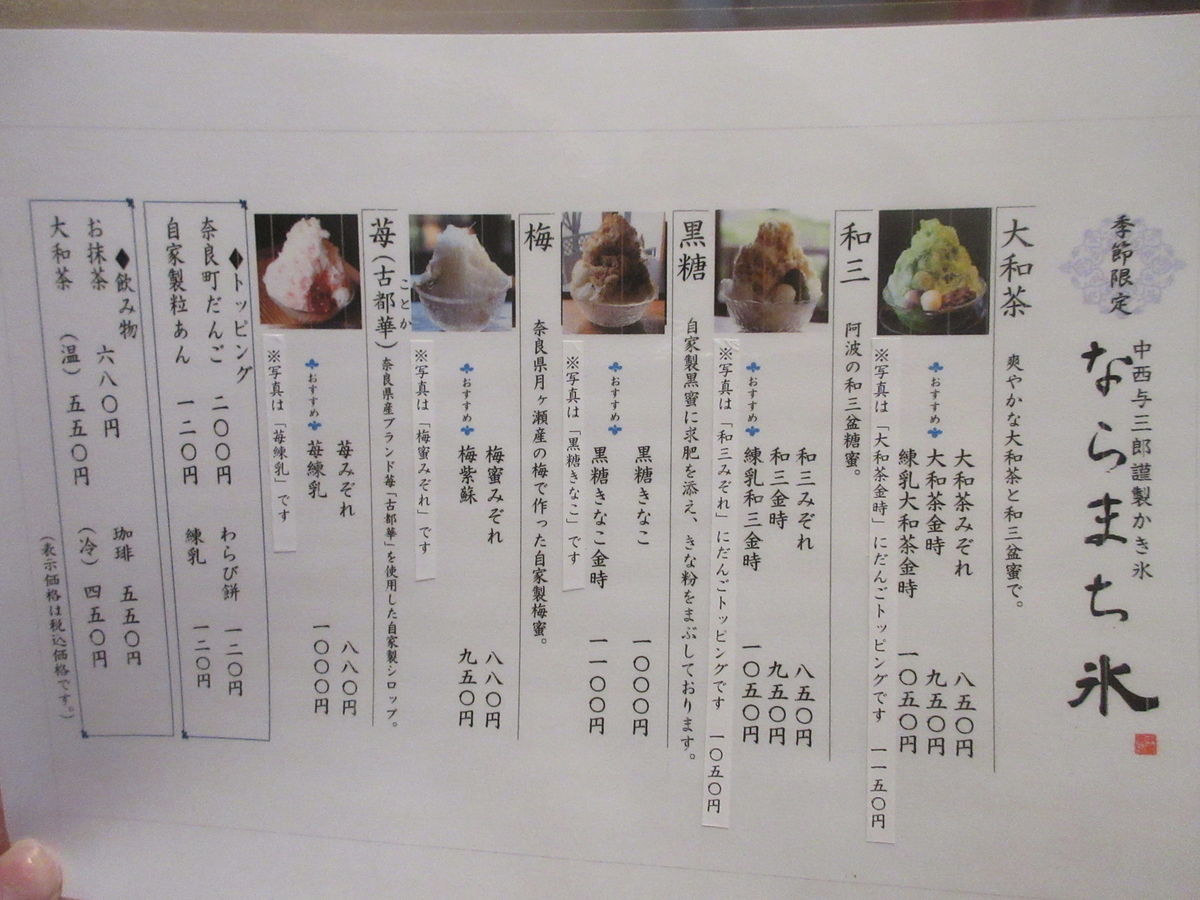 季節限定
中西与三郎謹製かき氷
ならまち氷
大和茶
爽やかな大和茶と和三盆蜜で。
大和茶みぞれ 八五〇円
おすすめ
大和茶金時 九五〇円
練乳大和茶金時 一〇五〇円
※写真は「大和茶金時」にだんごトッピングです 一一五〇円
和三
阿波の和三盆糖蜜。
和三みぞれ 八五〇円
和三金時 九五〇円
おすすめ
練乳和三金時 一〇五〇円
※写真は「和三みぞれ」にだんごトッピングです 一〇五〇円
黒糖
自家製黒蜜に求肥を添え、きな粉をまぶしております。
黒糖きなこ 一〇〇〇円
おすすめ
黒糖きなこ金時 一一〇〇円
※写真は「黒糖きなこ」です
梅
奈良県月ヶ瀬産の梅で作った自家製梅蜜。
梅蜜みぞれ 八八〇円
おすすめ
梅紫蘇 九五〇円
※写真は「梅蜜みぞれ」です
ことか
苺(古都華)
奈良県産ブランド苺「古都華」を使用した自家製シロップ。
苺みぞれ 八八〇円
おすすめ
苺練乳 一〇〇〇円
※写真は「苺練乳」です
◆トッピング
奈良町だんご 二〇〇円 わらび餅 一二〇円
自家製粒あん 一二〇円 練乳 一二〇円
◆飲み物
お抹茶 六八〇円 珈琲 五五〇円
大和茶 (温) 五五〇円 (冷) 四五〇円
(表示価格は税込価格です。)